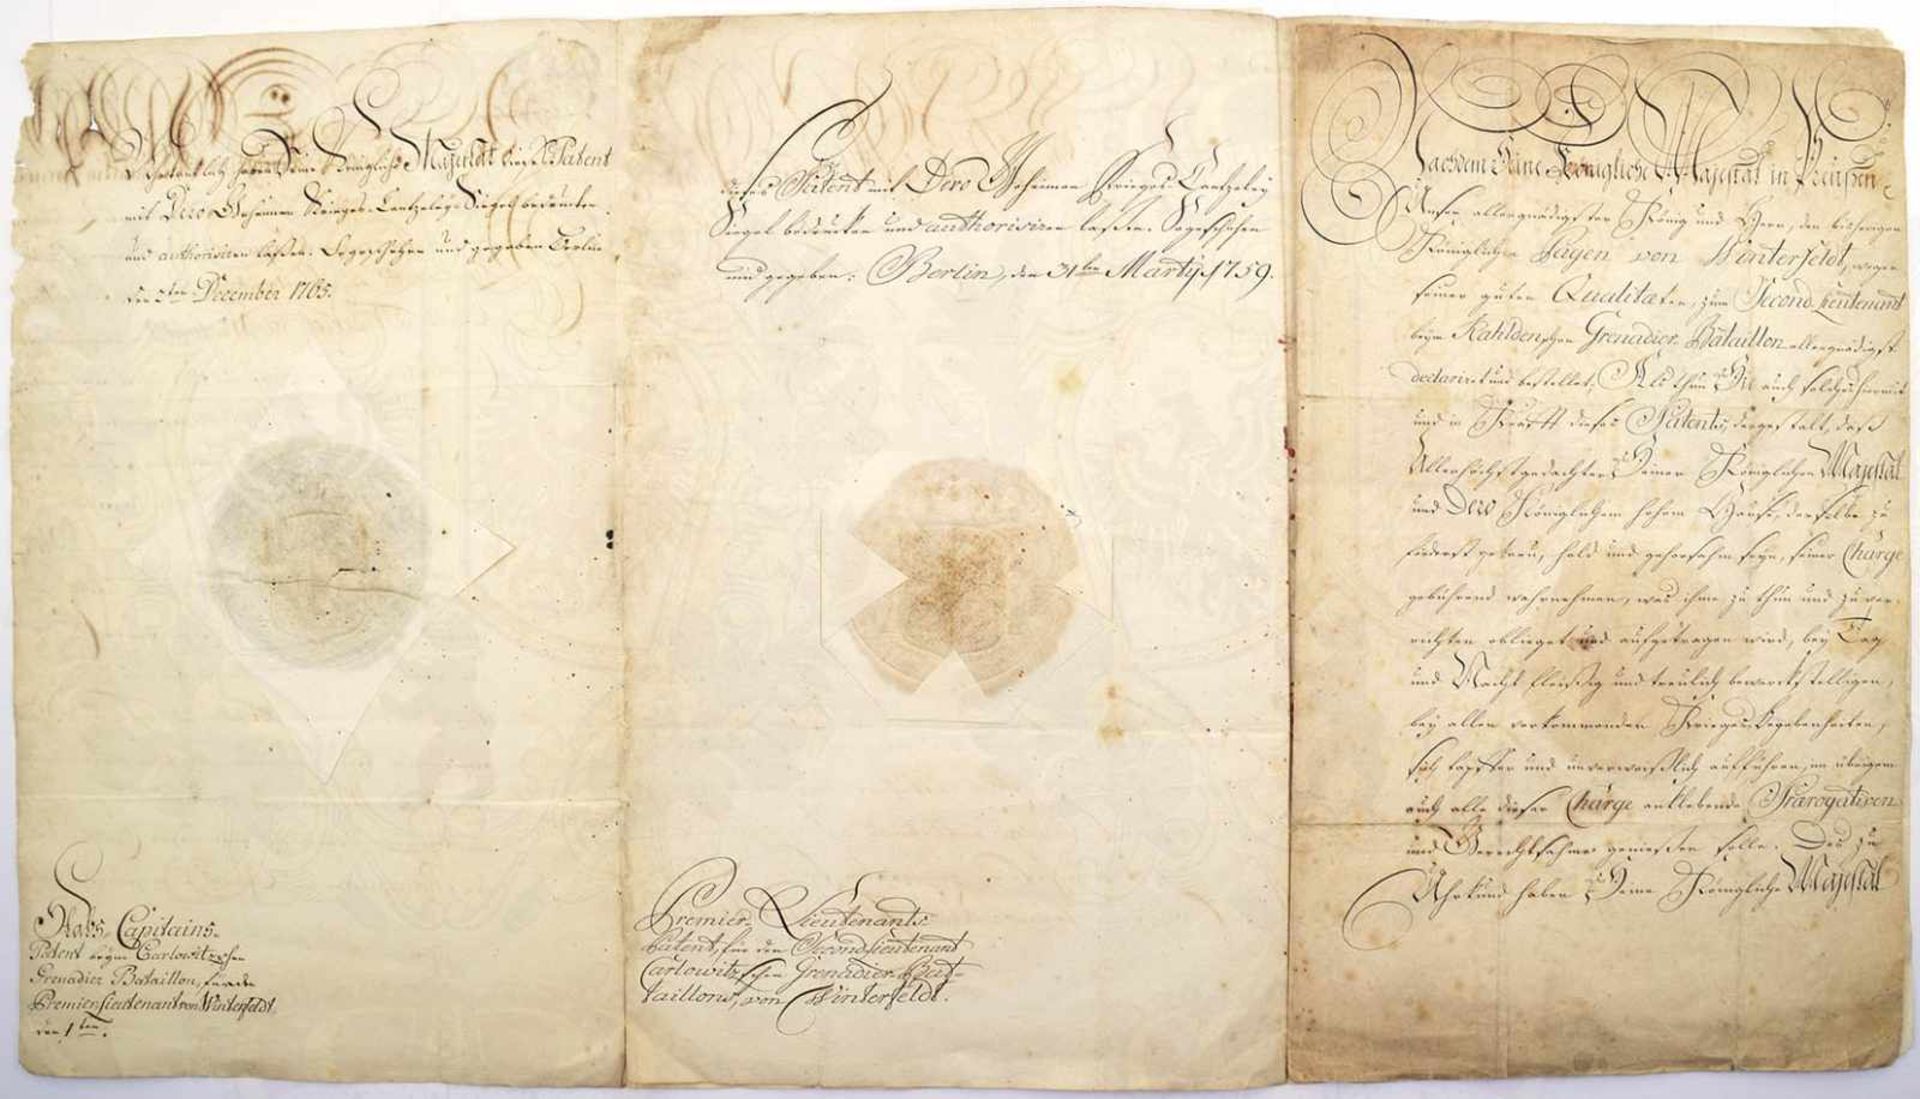 Höchstselbst haben Seine Königliche Majestät dieses Patent
mit Dero Geheimen Krieges-Cantzeley-Siegel bedrucken
und authorisiren laßen. So geschehen und gegeben Berlin
den 2ten December 1765.
Stabs-Capitains-
Patent beym Carlowitzschen
Grenadier Bataillon, für den
Premier Lieutenant von Winterfeldt.
den 1ten.
dieses Patent mit Dero Geheimen Krieges-Cantzeley
Siegel bedrucken und authorisiren laßen. So geschehen
und gegeben: Berlin, den 31ten Martij 1759.
Premier-Lieutenants-
Patent, für den Second Lieutenant
Carlowitzschen Grenadier-Bat-
taillons, von Winterfeldt.
Nachdem Seine Königliche Majestät in Preüßen
Unser allergnädigster König und Herr, den bisherigen
Königlichen Pagen von Winterfeldt, wegen
seiner guten Qualitæten, zum Second Lieutenant
beym Rahldenschen Grenadier-Bataillon allergnädigst
declariret und bestellet; Als thun Sie auch solches hiermit
und in Krafft dieses Patents, dergestalt, daß
Allerhöchstgedachter Seiner Königlichen Majestät
und Dero Königlichem hohem Hause, derselbe zu
förderst getreu, hold und gehorsahm seyn, seiner Charge
gebührend wahrnehmen, was ihme zu thun und zu ver-
richten oblieget und aufgetragen wird, bey Tag
und Nacht fleißig und treulich bewerckstelligen,
bey allen vorkommenden Krieges-Begebenheiten,
sich tapffer und unverweißlich aufführen, im übrigen
auch alle dieser Charge anklebende Prærogativen
und Gerechtsahme genießen solle. Des zu
Uhrkund haben Seine Königliche Majestät